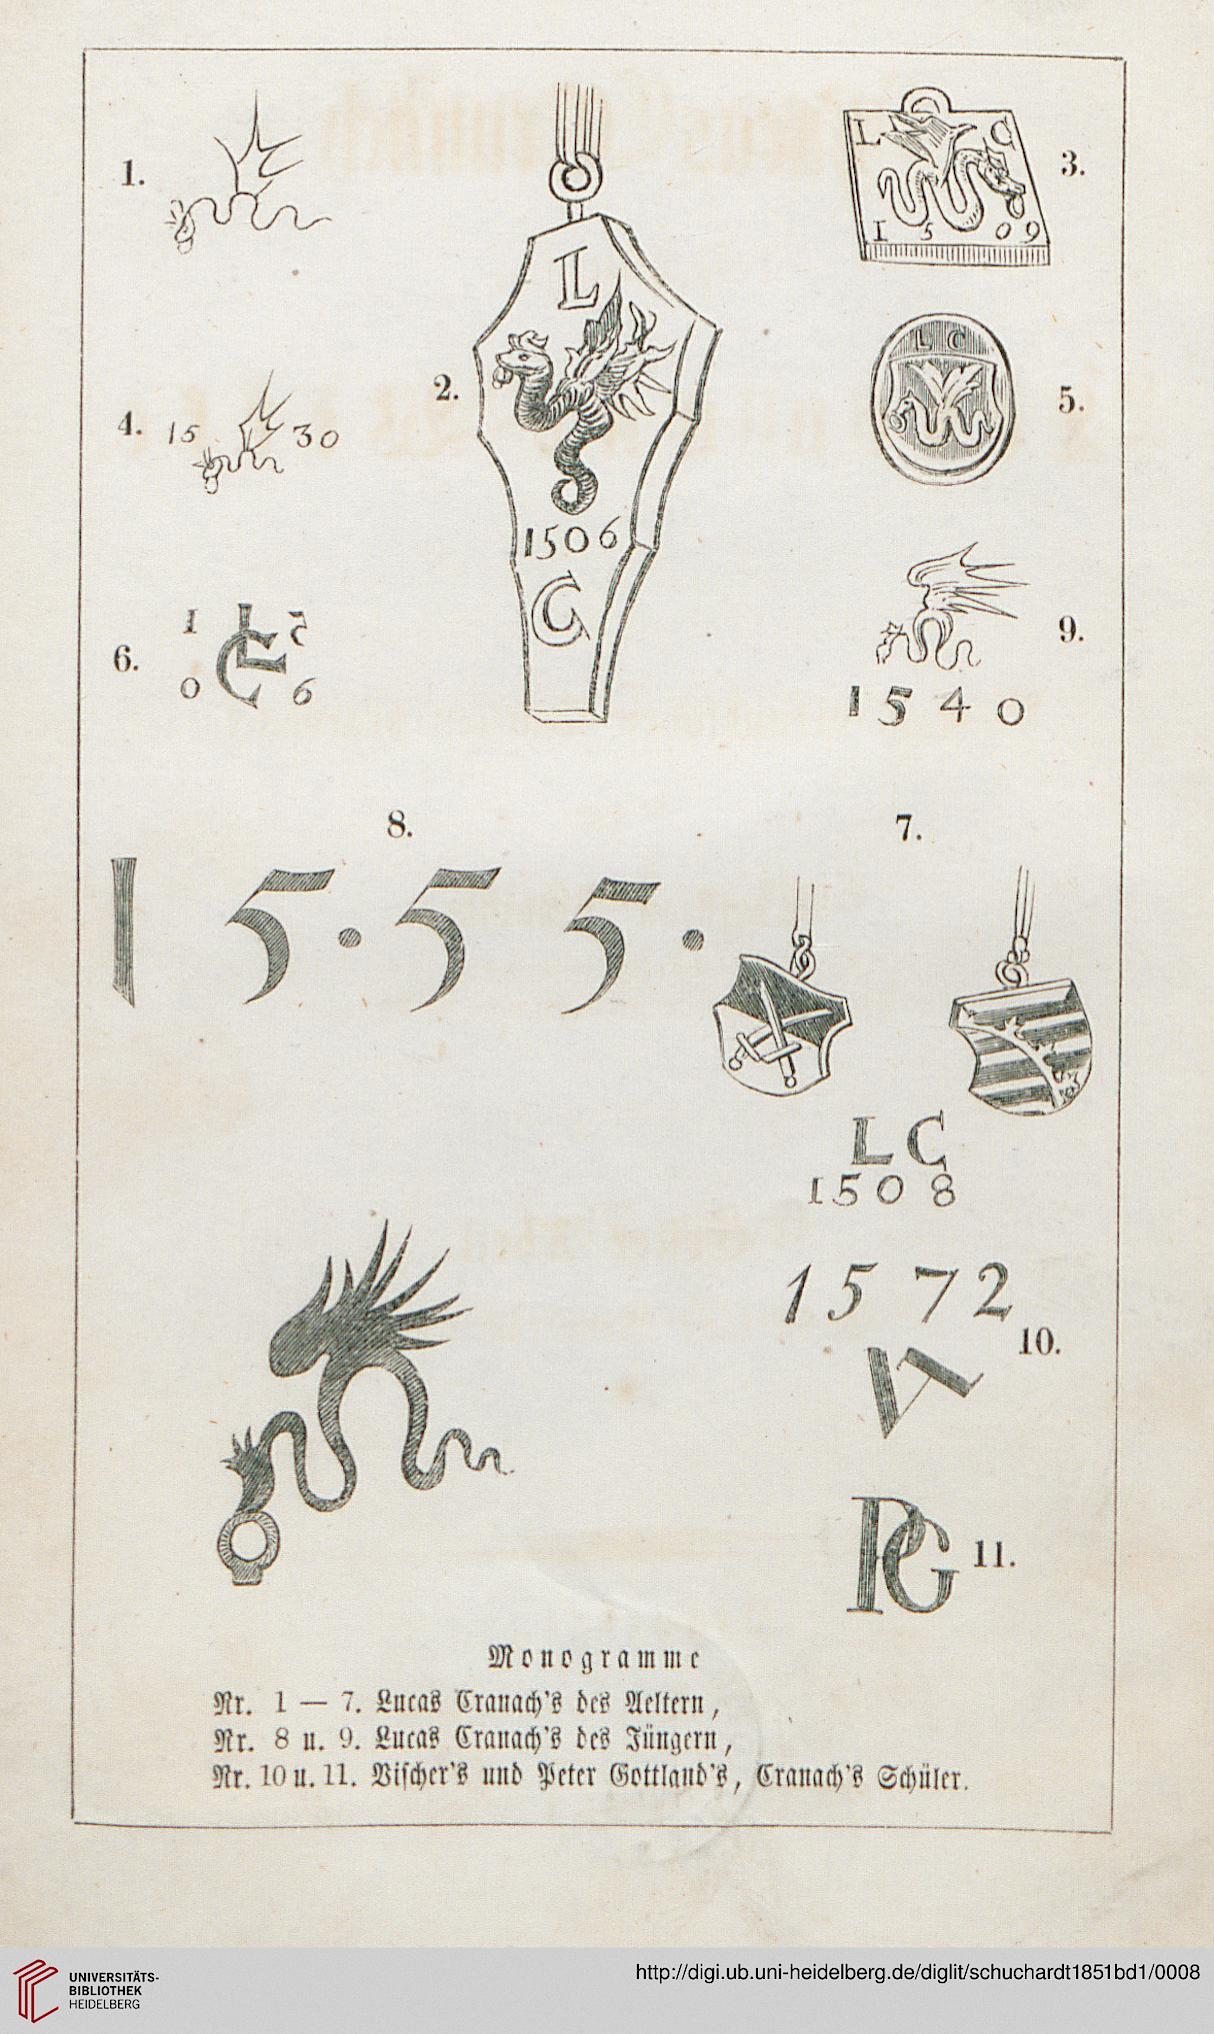 1.
L
1506
C
2.
L C
1509
3.
4. 15 30
L C
5.
6.
1 5
LC
0 6
9.
1540
8.
15·55·
7.
LC
1508
1572
10.
PG 11.
Monogramme
Nr. 1 — 7. Lucas Cranach's des Aeltern,
Nr. 8 u. 9. Lucas Cranach's des Jüngern,
Nr. 10 u. 11. Vischer's und Peter Gottland's, Cranach's Schüler.
UNIVERSITÄTS-
BIBLIOTHEK
HEIDELBERG
http://digi.ub.uni-heidelberg.de/diglit/schuchardt1851bd1/0008